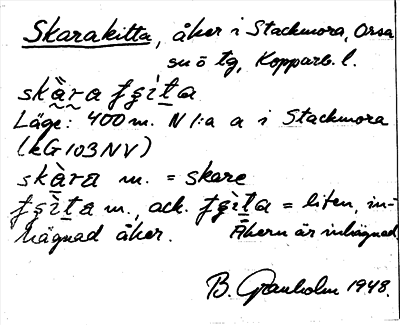 Skarakitta, åker i Stackmora, Orsa
sn ö tg, Kopparb. l.
skàra fşìta
Läge: 400 m. N 1:a a i Stackmora
(kG 103 NV)
skàra m. = skare
fşìta m., ack. fşìta = liten, in-
hägnad åker. Åkern är inhägnad.
B. Granholm 1948.